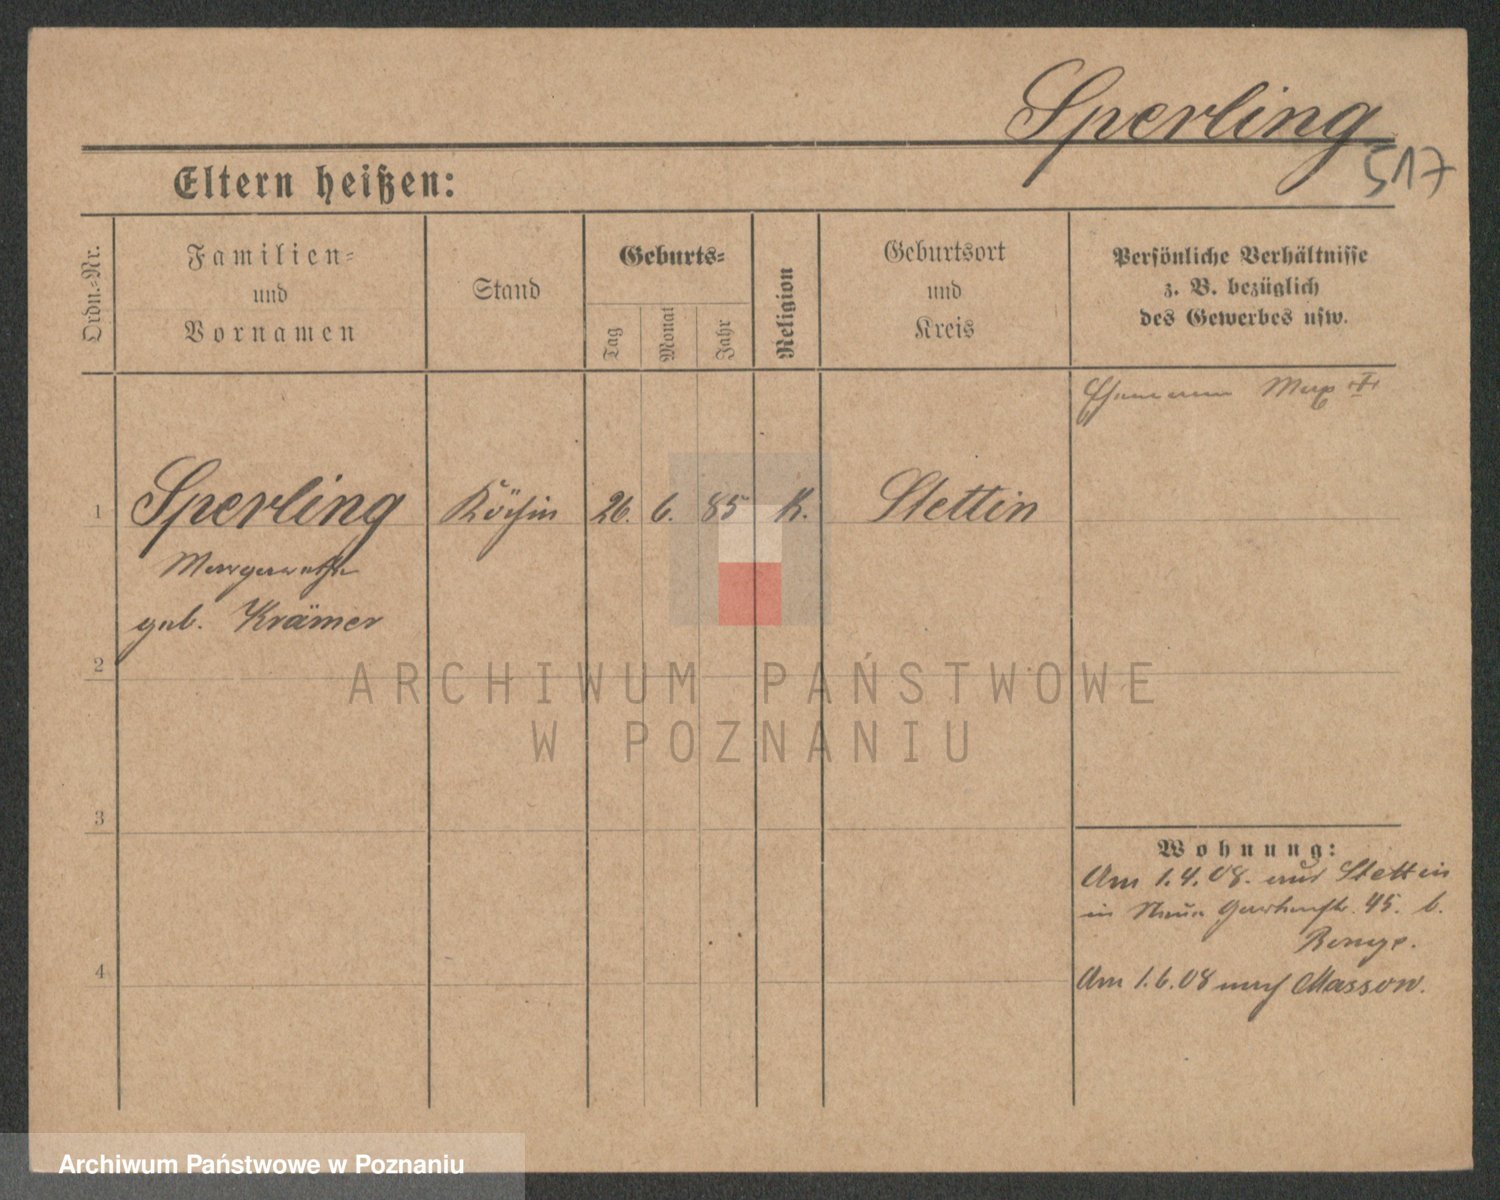 Sperling
517
Eltern heißen:
Ordn.-Nr.
Familien-
und
Vornamen
Stand
Geburts-
Tag
Monat
Jahr
Religion
Geburtsort
und
Kreis
Persönliche Verhältnisse
z. B. bezüglich
des Gewerbes usw.
Ehemann Max
1
Sperling
Köchin
26.
6.
85
K.
Stettin
Margarethe
geb. Krämer
2
ARCHIWUM PAŃSTWOWE
W POZNANIU
3
4
Wohnung:
Am 1.4.08. aus Stettin
in Neue Gartenstr. 45. b.
Am 1.6.08 nach Massow.
Archiwum Państwowe w Poznaniu